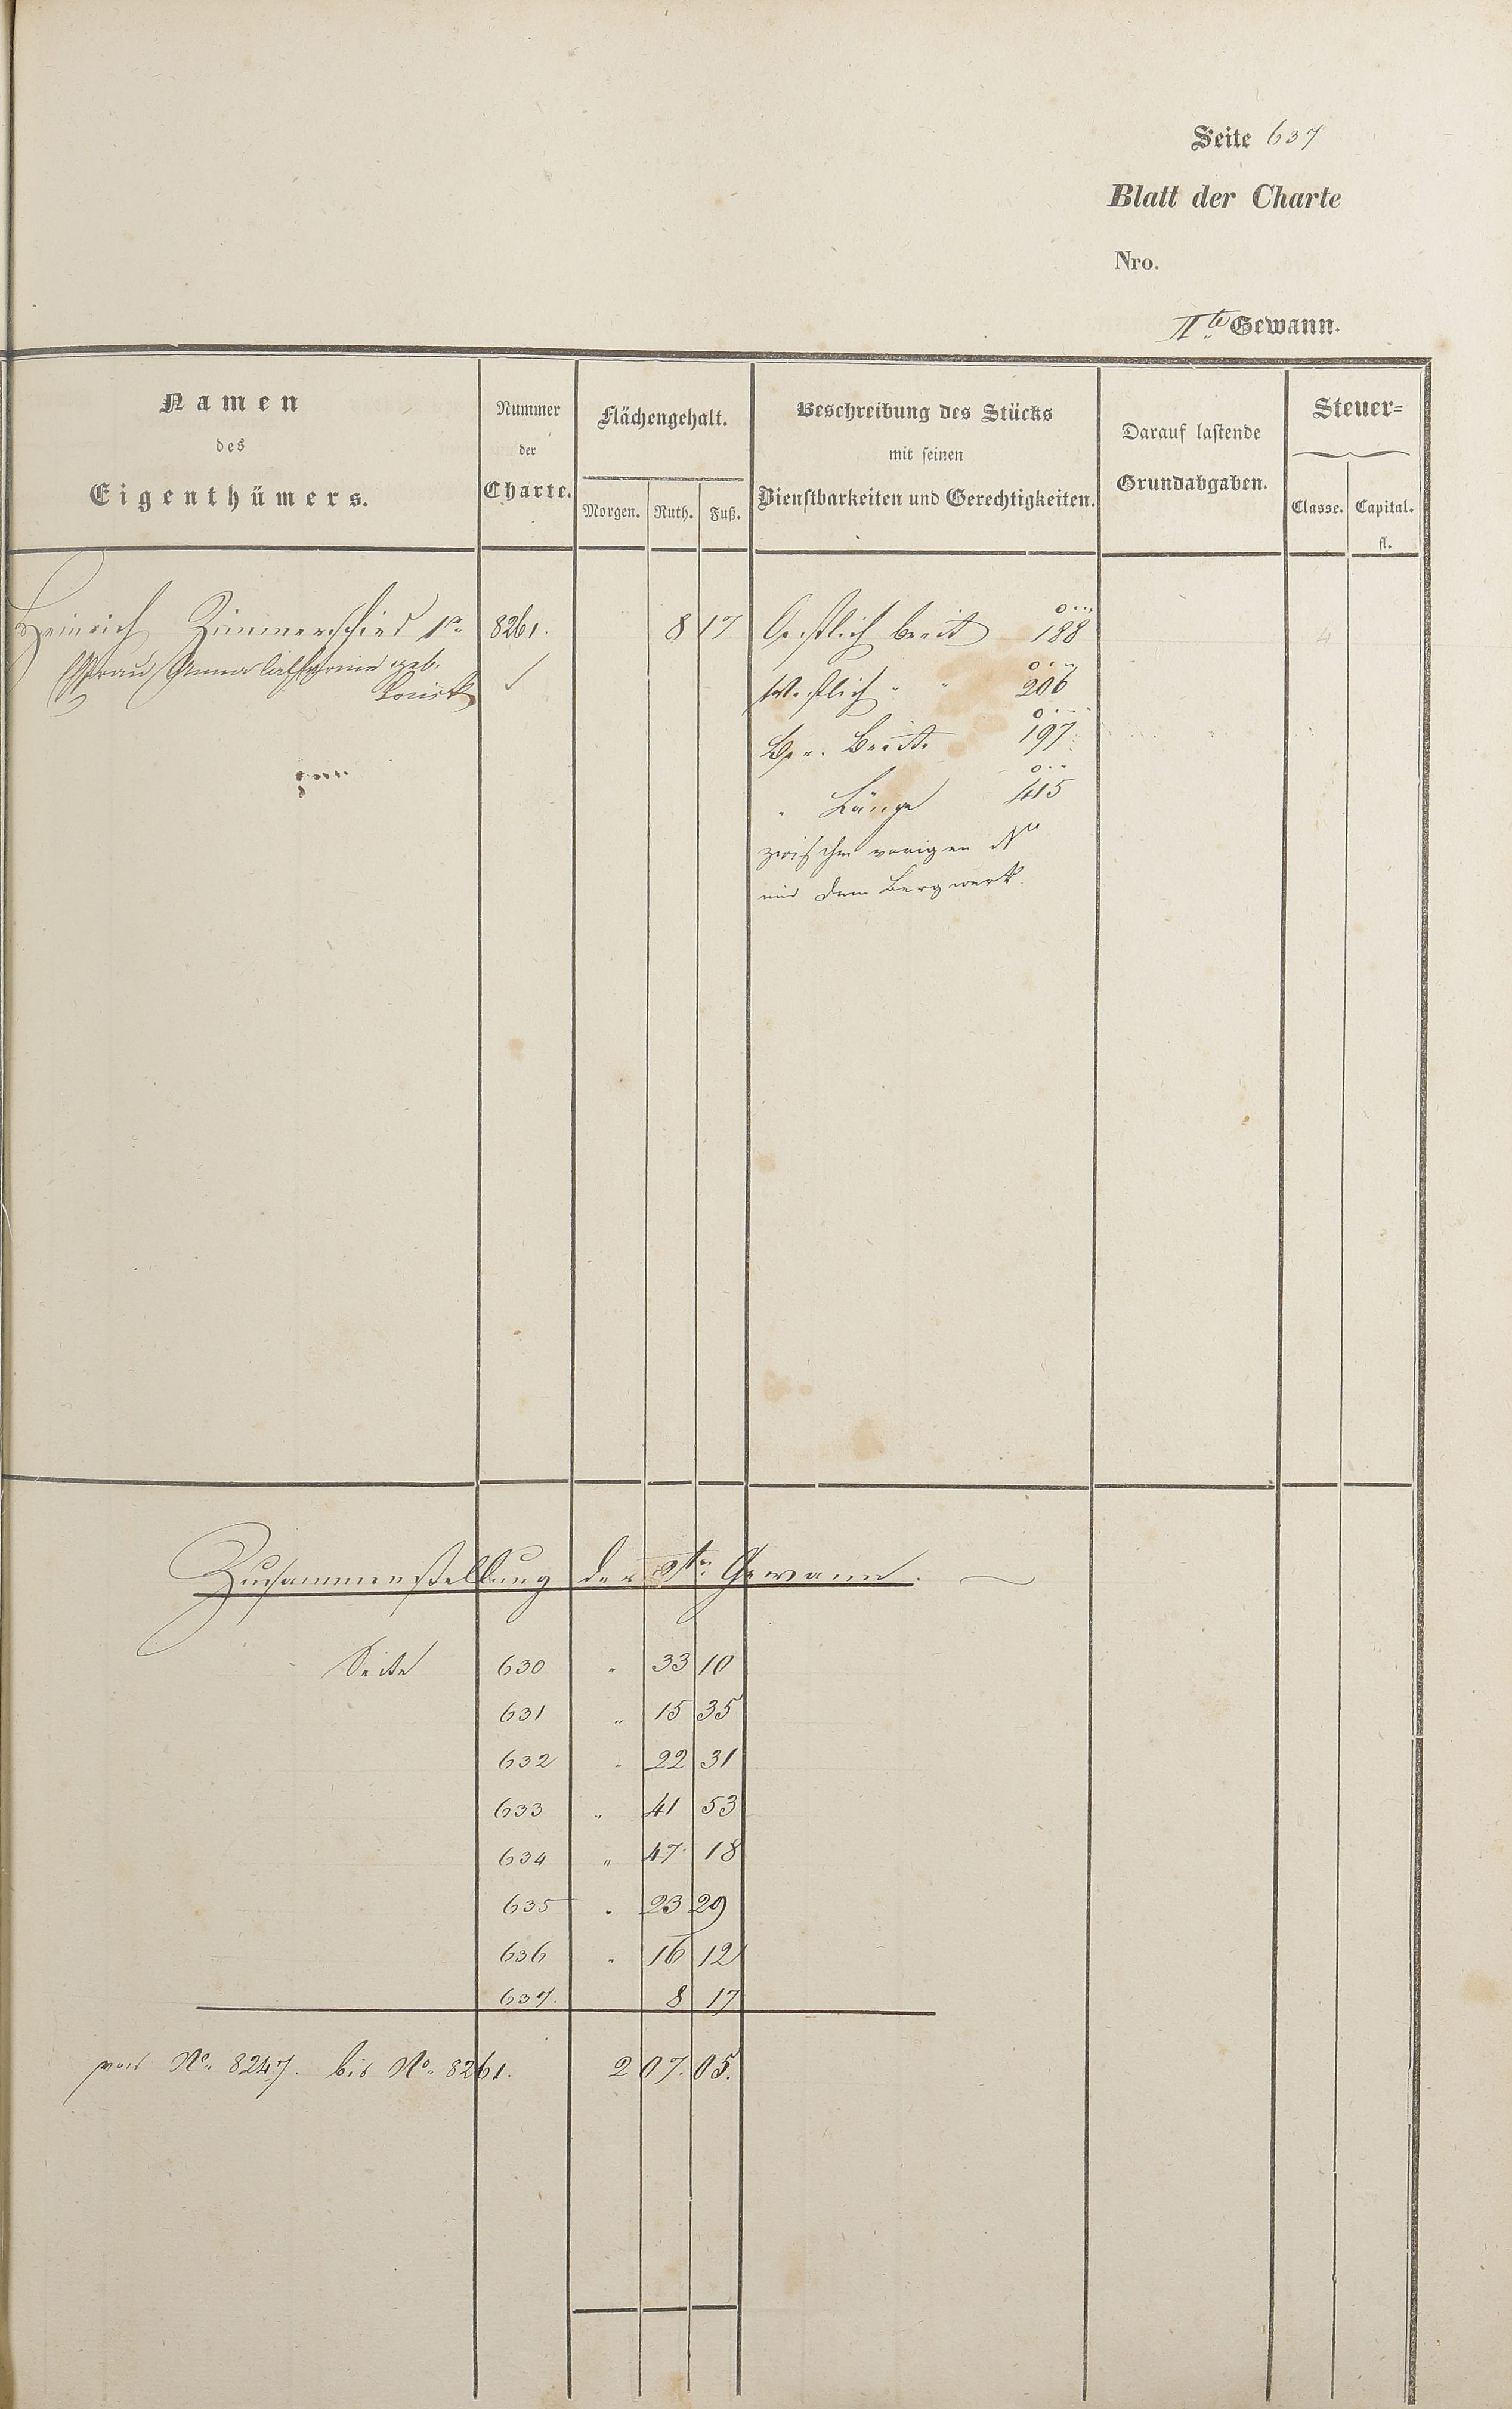 Seite 637
Blatt der Charte
Nro.
IIte Gewann.
Namen
des
Eigenthümers.
Nummer
der
Charte.
Flächengehalt.
Morgen. Ruth. Fuß.
Beschreibung des Stücks
mit seinen
Dienstbarkeiten und Gerechtigkeiten.
Darauf lastende
Grundabgaben.
Steuer=
Classe. Capital.
fl.
Heinrich Zimmerschied 1r 8261. 8 17 Oestlich breit 188 4
Ehfrau Anna geb.
Westlich " " 206
Ger. Breite 197
" Länge 415
zwischen vorigen No
und dem Bergwerk.
Zusammenstellung der 2te Gewann.
Seite 630 " 33 10
631 " 15 35
632 " 22 31
633 " 41 53
634 " 47 18
635 " 23 29
636 " 16 12
637. 8 17
von No. 8247. bis No. 8261. 2 07. 05.